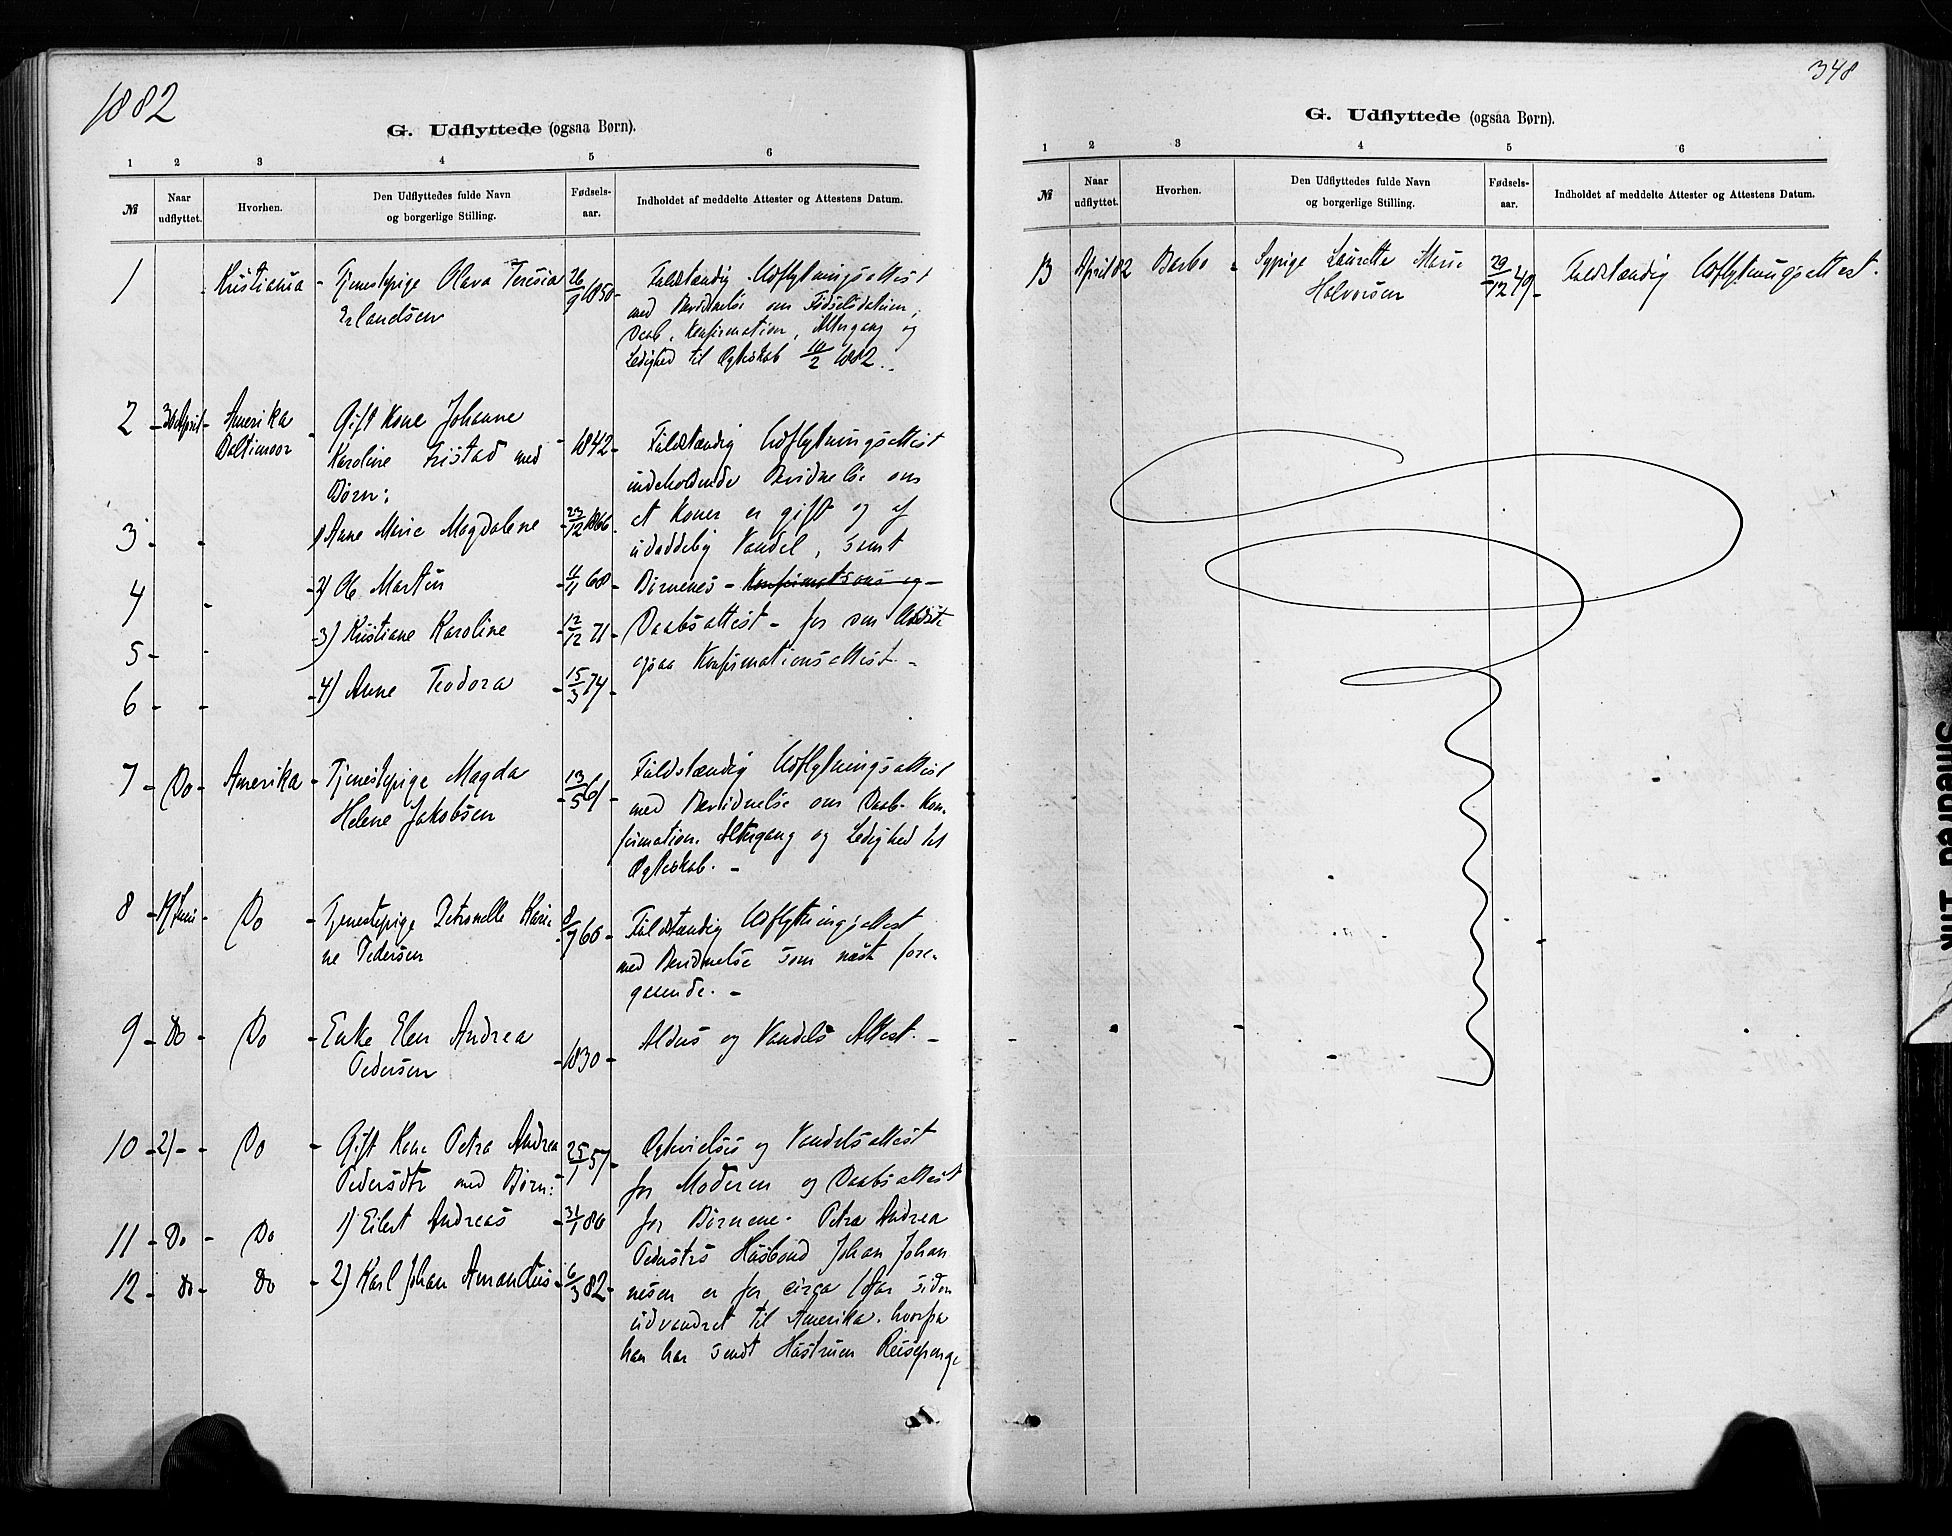 1882
G. Udflyttede (ogsaa Børn).
1 2 3 4 5 6
№ Naar udflyttet. Hvorhen. Den Udflyttedes fulde Navn og borgerlige Stilling. Fødsels-aar. Indholdet af meddelte Attester og Attestens Datum.
1 Kristiania - Tjenestepige Olava Teresia 26/9 1850 - Fuldstændig Udflytningsattest
Erlandsen med Bevidnelse om Fødselsdatum,
Daab, Konfirmation, Altergang og
Ledighed til Ægteskab 10/2 1882.
2 - 30 April - Amerika - Gift Kone Johanne - 1842 - Fuldstændig Udflytningsattest
Baltimoor Karoline Fristad med indeholdende Bevidnelse om
Børn: at Konen er gift og af
3 - - 1) Anne Marie Magdalene 23/12 1866 udadelig Vandel, samt
4 - 2) Ole Martin - 11/11 68 - Børnenes - Konfirmations og -
5 - - 3) Kristiane Karoline - 12/12 71 - Daabsattest - for den ældste
6 - - 4) Anne Teodora - 15/3 74 - ogsaa Konfirmationsattest. -
7 - Do - Amerika - Tjenestepige Magda 13/5 61 - Fuldstændig Udflytningsattest
Helene Jakobsen med Bevidnelse om Daab- Kon-
firmation. Altergang og Ledighed til
Ægteskab. -
8 - 19 Juni - Do - Tjenestepige Petronelle Kari- 8/9 60 - Fuldstændig Udflytningsattest
ne Pedersen med Bevidnelse som næst fore-
gaaende. -
9 - Do - Do - Enke Elen Andrea - 1830 - Alders og Vandels Attest. -
Pedersen
10 - 21 - - Do - Gift Kone Petra Andrea 25/1 57 - Ægtevielses og Vandelsattest
Pedersdtr med Børn: for Moderen og Daabsattest
1) Eilert Andreas - 31/1 80 for Børnene. Petra Andrea
11 - Do - Do Pedersdtrs Husbond Johan Johan
12 - Do - Do - 2) Karl Johan Amandus - 6/3 82 - nesen er for circa 1 Aar siden
udvandret til Amerika. hvorfra
han har sendt Hustruen Reisepenge
348
G. Udflyttede (ogsaa Børn).
1 2 3 4 5 6
№ Naar udflyttet. Hvorhen. Den Udflyttedes fulde Navn og borgerlige Stilling. Fødsels-aar. Indholdet af meddelte Attester og Attestens Datum.
13 April 82 Barbo - Sypige Laurette Marie 29/12 49 - Fuldstændig Udflytningsattest.
Halvorsen